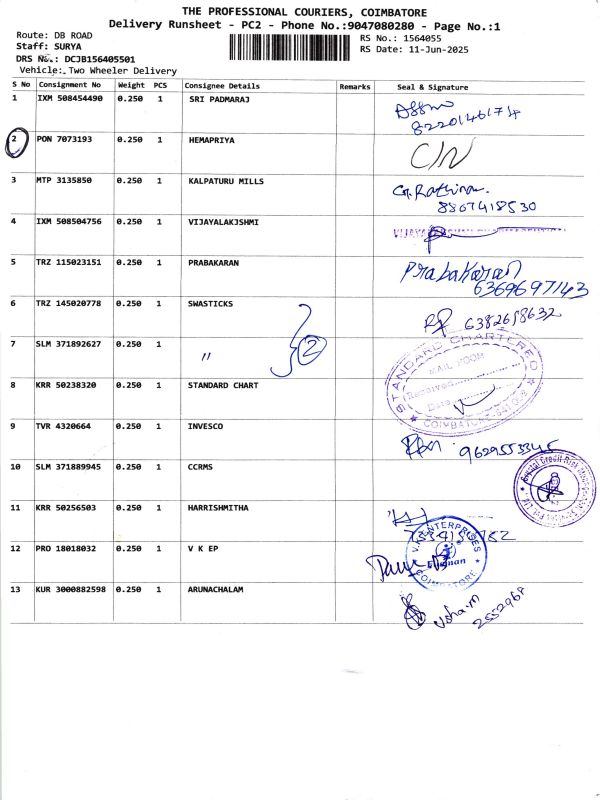 THE PROFESSIONAL COURIERS, COIMBATORE
Delivery Runsheet - PC2 - Phone No.:9047080280 - Page No.:1
Route: DB ROAD
RS No.: 1564055
Staff: SURYA
RS Date: 11-Jun-2025
DRS No.: DCJB156405501
Vehicle: Two Wheeler Delivery
S No Consignment No Weight PCS Consignee Details Remarks Seal & Signature
1 IXM 508454490 0.250 1 SRI PADMARAJ
8220146174
2 PON 7073193 0.250 1 HEMAPRIYA C/N
3 MTP 3135850 0.250 1 KALPATURU MILLS G. Rathina
8867418530
4 IXM 508504756 0.250 1 VIJAYALAKJSHMI
5 TRZ 115023151 0.250 1 PRABAKARAN Prabakaran
6369697143
6 TRZ 145020778 0.250 1 SWASTICKS 6382658632
7 SLM 371892627 0.250 1 " 2
STANDARD CHARTERED
MAIL ROOM
Received
Date
COIMBATORE
8 KRR 50238320 0.250 1 STANDARD CHART
9 TVR 4320664 0.250 1 INVESCO 9629553345
10 SLM 371889945 0.250 1 CCRMS
11 KRR 50256503 0.250 1 HARRISHMITHA
12 PRO 18018032 0.250 1 V K EP
ENTERPRISES
COIMBATORE
13 KUR 3000882598 0.250 1 ARUNACHALAM
Usha.M
2552968